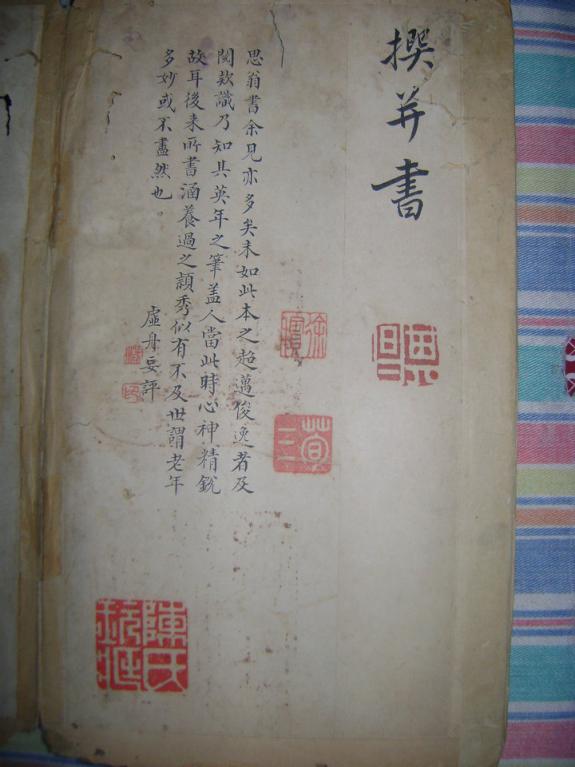 撰并書
思翁書余見亦多矣未如此本之超邁俊逸者及
閱款識乃知其英年之筆盖人當此時心神精銳
故耳後来所書涵養過之穎秀似有不及世謂老年
多妙或不盡然也
虛舟妄評
陳氏